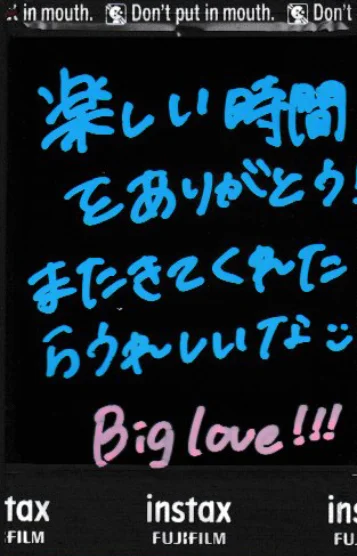 in mouth. Don't put in mouth. Don't
楽しい時間
をありがとう!
またきてくれた
らうれしいな
Big love!!!
tax instax ins
FILM FUJIFILM FU